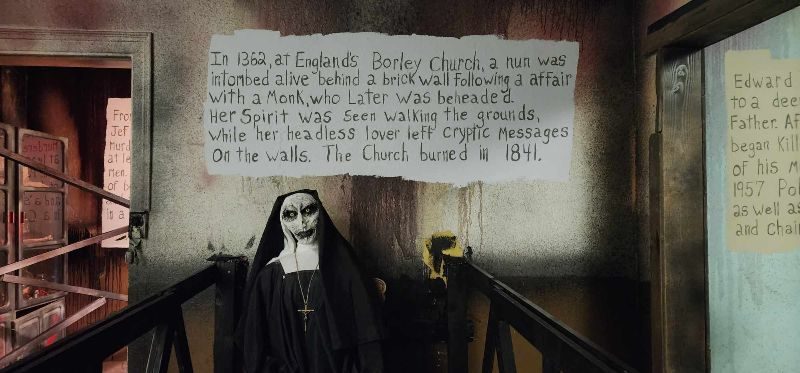 In 1362, at England's Borley Church, a nun was
intombed alive behind a brick wall following a affair
with a Monk, who Later was beheaded.
Her Spirit was seen walking the grounds,
while her headless lover left cryptic messages
on the walls. The Church burned in 1841.
Fro
Jef
Murd
at le
men.
of b
in a
Edward
to a dee
Father. Af
began Kill
of his M
1957 Pol
as well as
and Chai